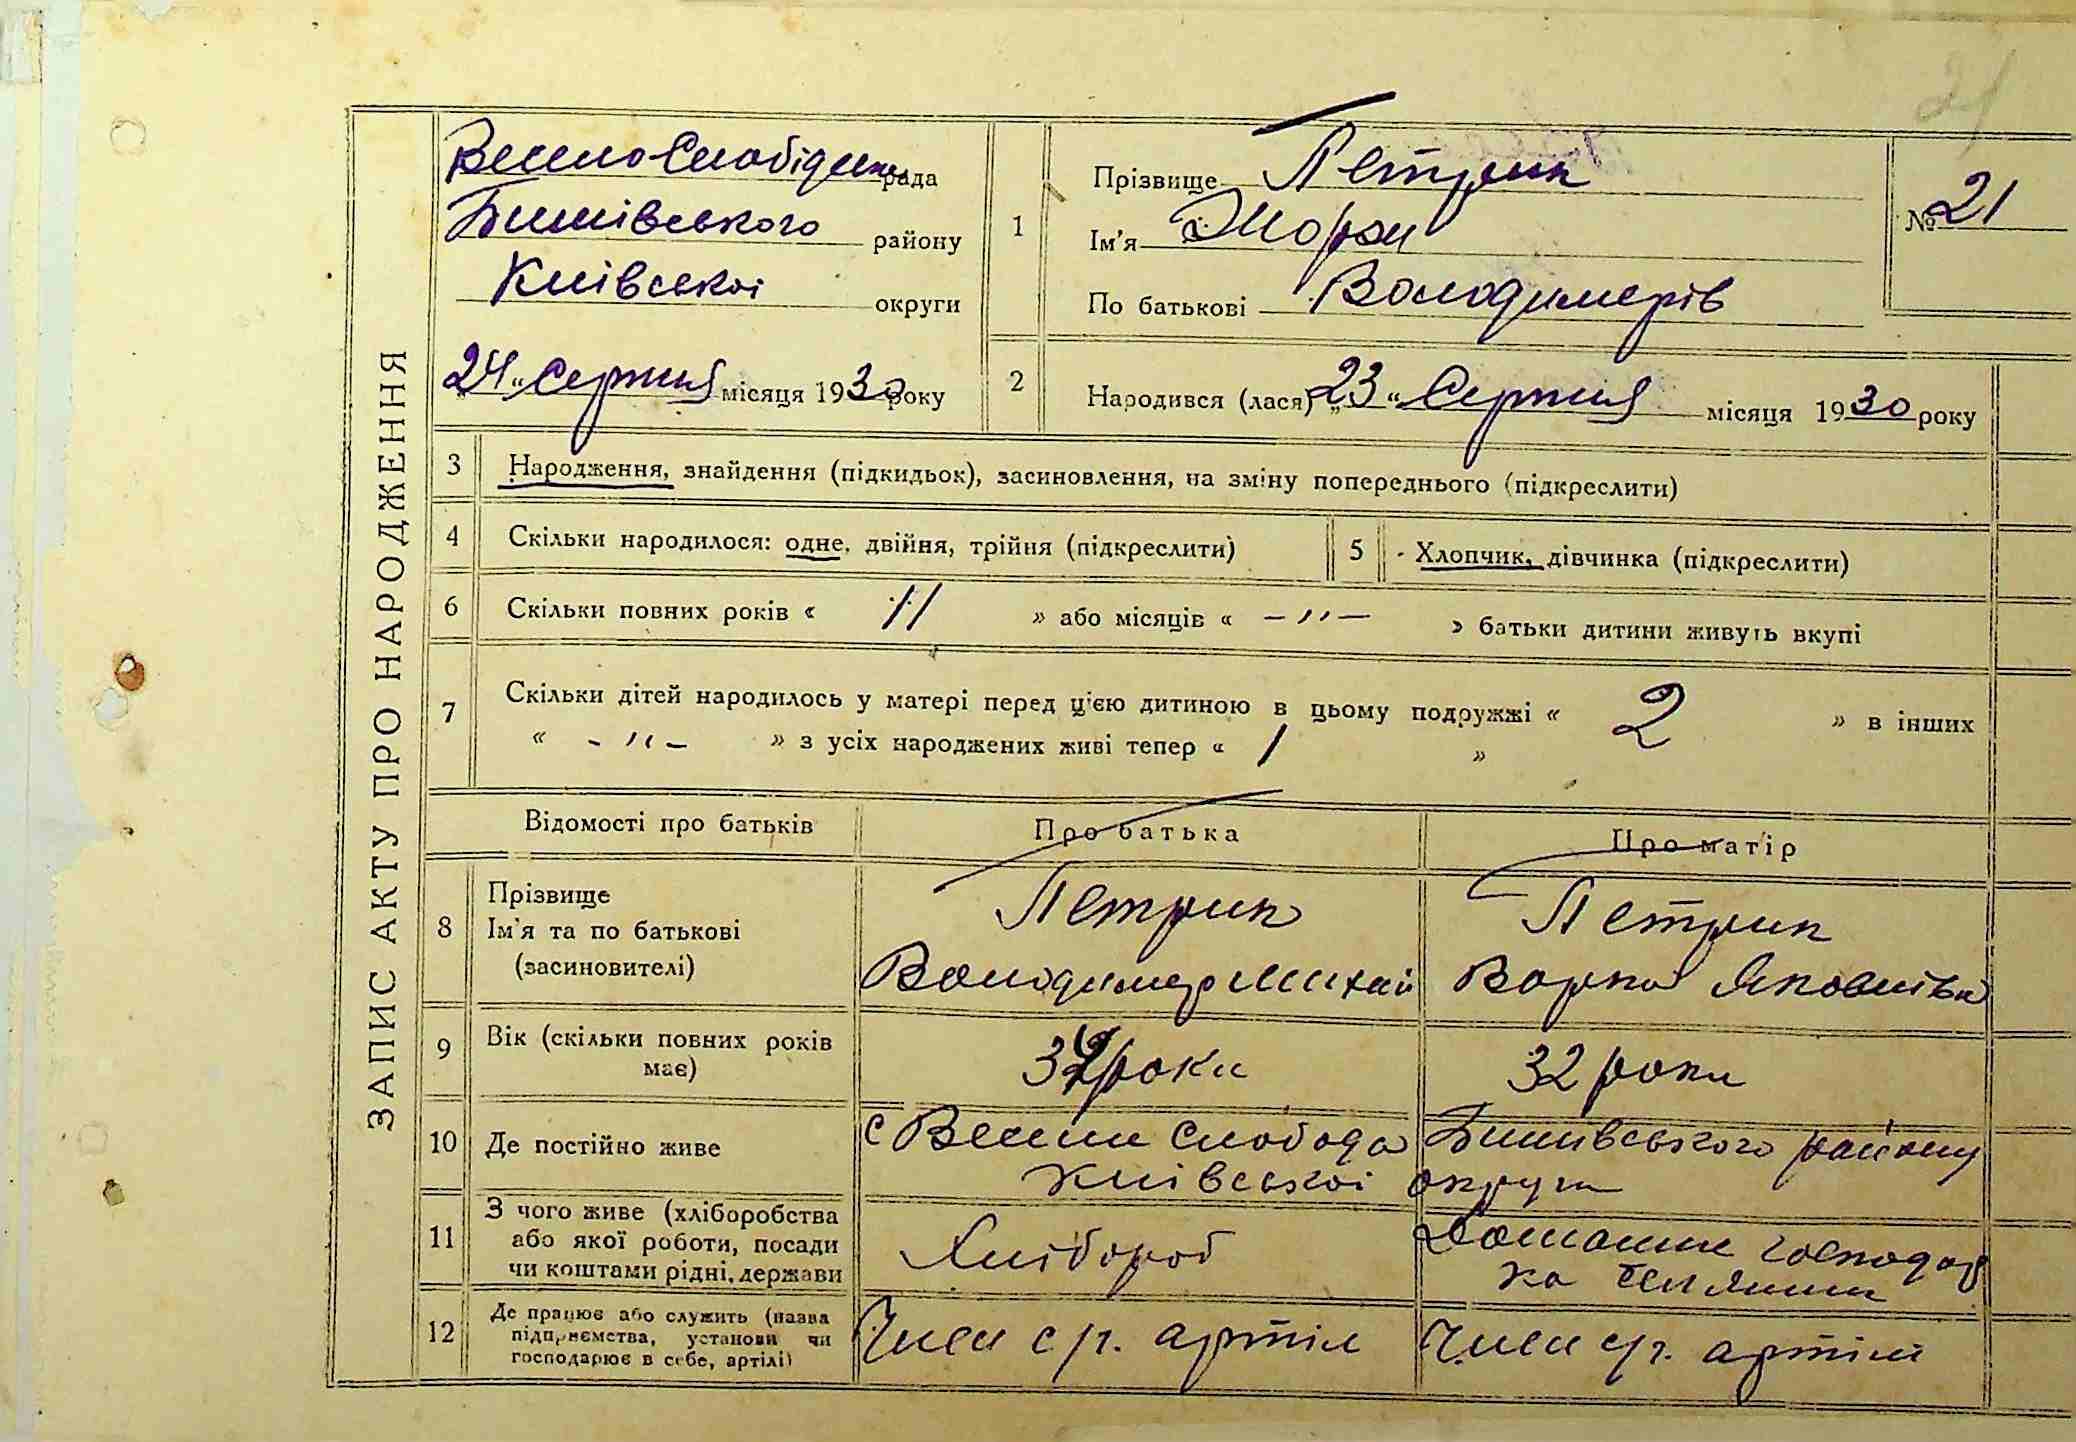 ЗАПИС АКТУ ПРО НАРОДЖЕННЯ
21
Весело-Слобідська рада
Бишівського району
Київської округи
24 „ Серпня місяця 1930 року
1
Прізвище Петрик
Ім'я Жорж
По батькові Володимерів
№ 21
2
Народився (лася) „23 “ Серпня місяця 1930 року
3 Народження, знайдення (підкидьок), засиновлення, на зміну попереднього (підкреслити)
4 Скільки народилося: одне, двійня, трійня (підкреслити) 5 Хлопчик, дівчинка (підкреслити)
6 Скільки повних років « 11 » або місяців « – „ – » батьки дитини живуть вкупі
7 Скільки дітей народилось у матері перед ц'єю дитиною в цьому подружжі « 2 » в інших
« – „ – » з усіх народжених живі тепер « 1 »
Відомості про батьків Про батька Про матір
8 Прізвище
Ім'я та по батькові
(засиновителі)
Петрик
Володимер Михай
Петрик
Варка Яковлівна
9 Вік (скільки повних років
має)
роки
32 роки
10 Де постійно живе
с Весели Слобода Бишівського району
Київської округи
11 З чого живе (хліборобства
або якої роботи, посади
чи коштами рідні, держави
Хлібороб
Домашнє господар
ка
12 Де працює або служить (назва
підприємства, установи чи
господарює в себе, артілі)
Член с/г. артіл
Член с/г. артілі